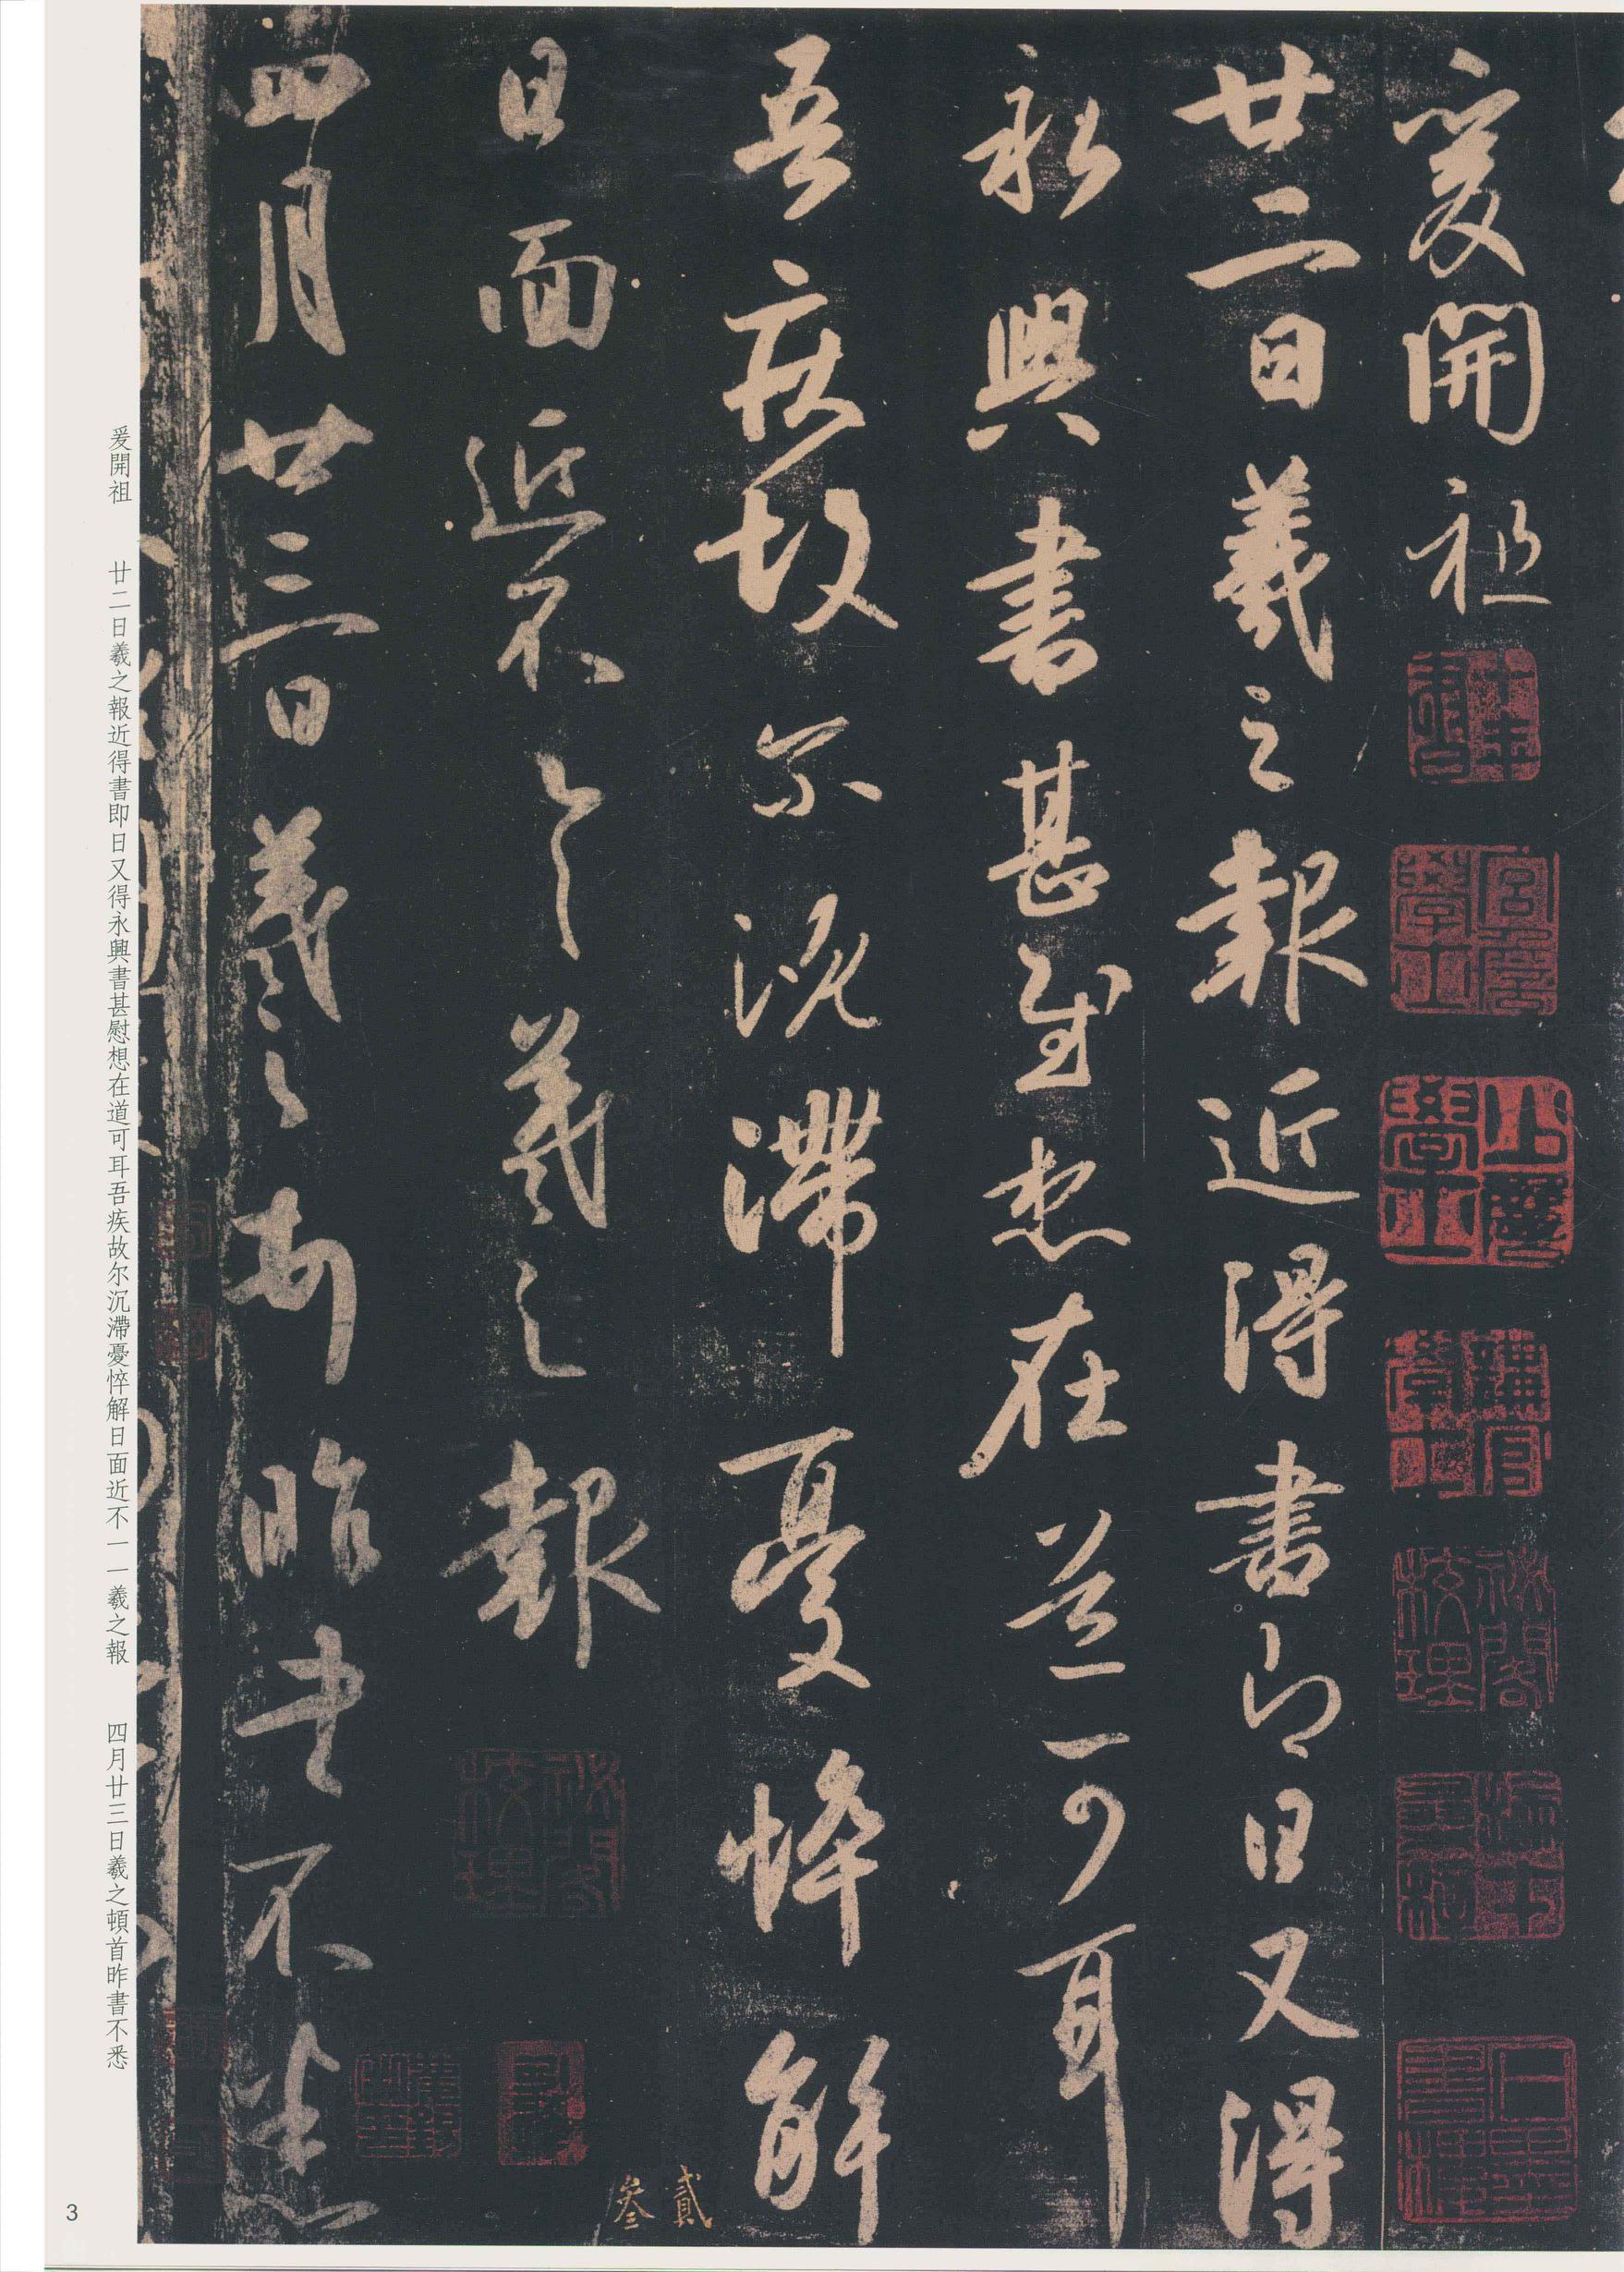 爰開祖
廿二日羲之報近得書即日又得
永興書甚慰想在道可耳
吾疾故尔沉滯憂悴解
日面近不一一羲之報
四月廿三日羲之頓首昨書不悉
貳
叁
秘閣校理
秘閣校理
爰開祖　廿二日羲之報近得書即日又得永興書甚慰想在道可耳吾疾故尔沉滯憂悴解日面近不一一羲之報　四月廿三日羲之頓首昨書不悉
3